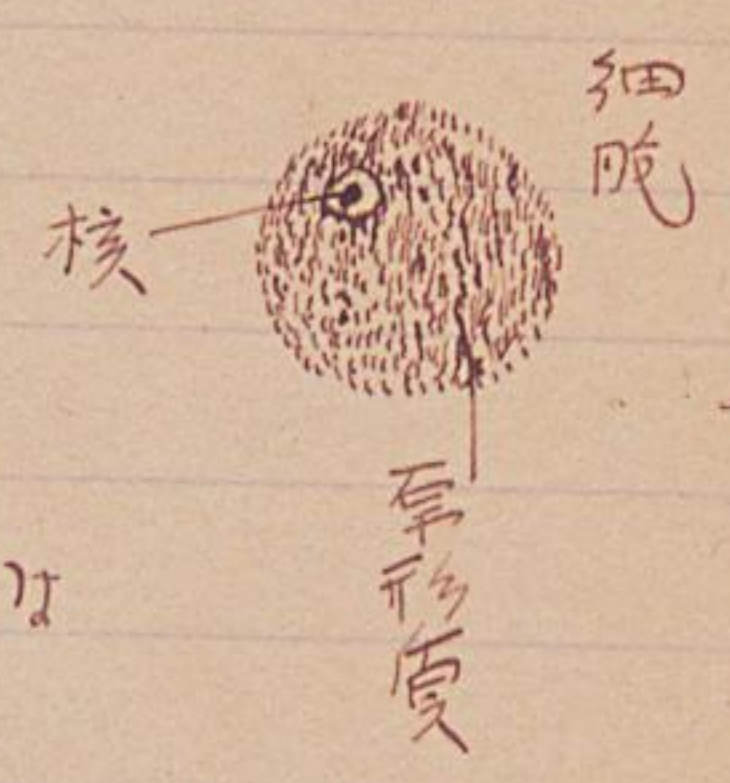 細胞
核
原形質
は